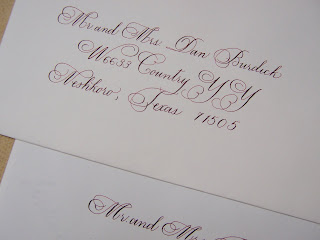 Mr. and Mrs. Dan Burdick
W6633 Country YY
Neshkoro, Texas 71505
Mr. and Mrs.